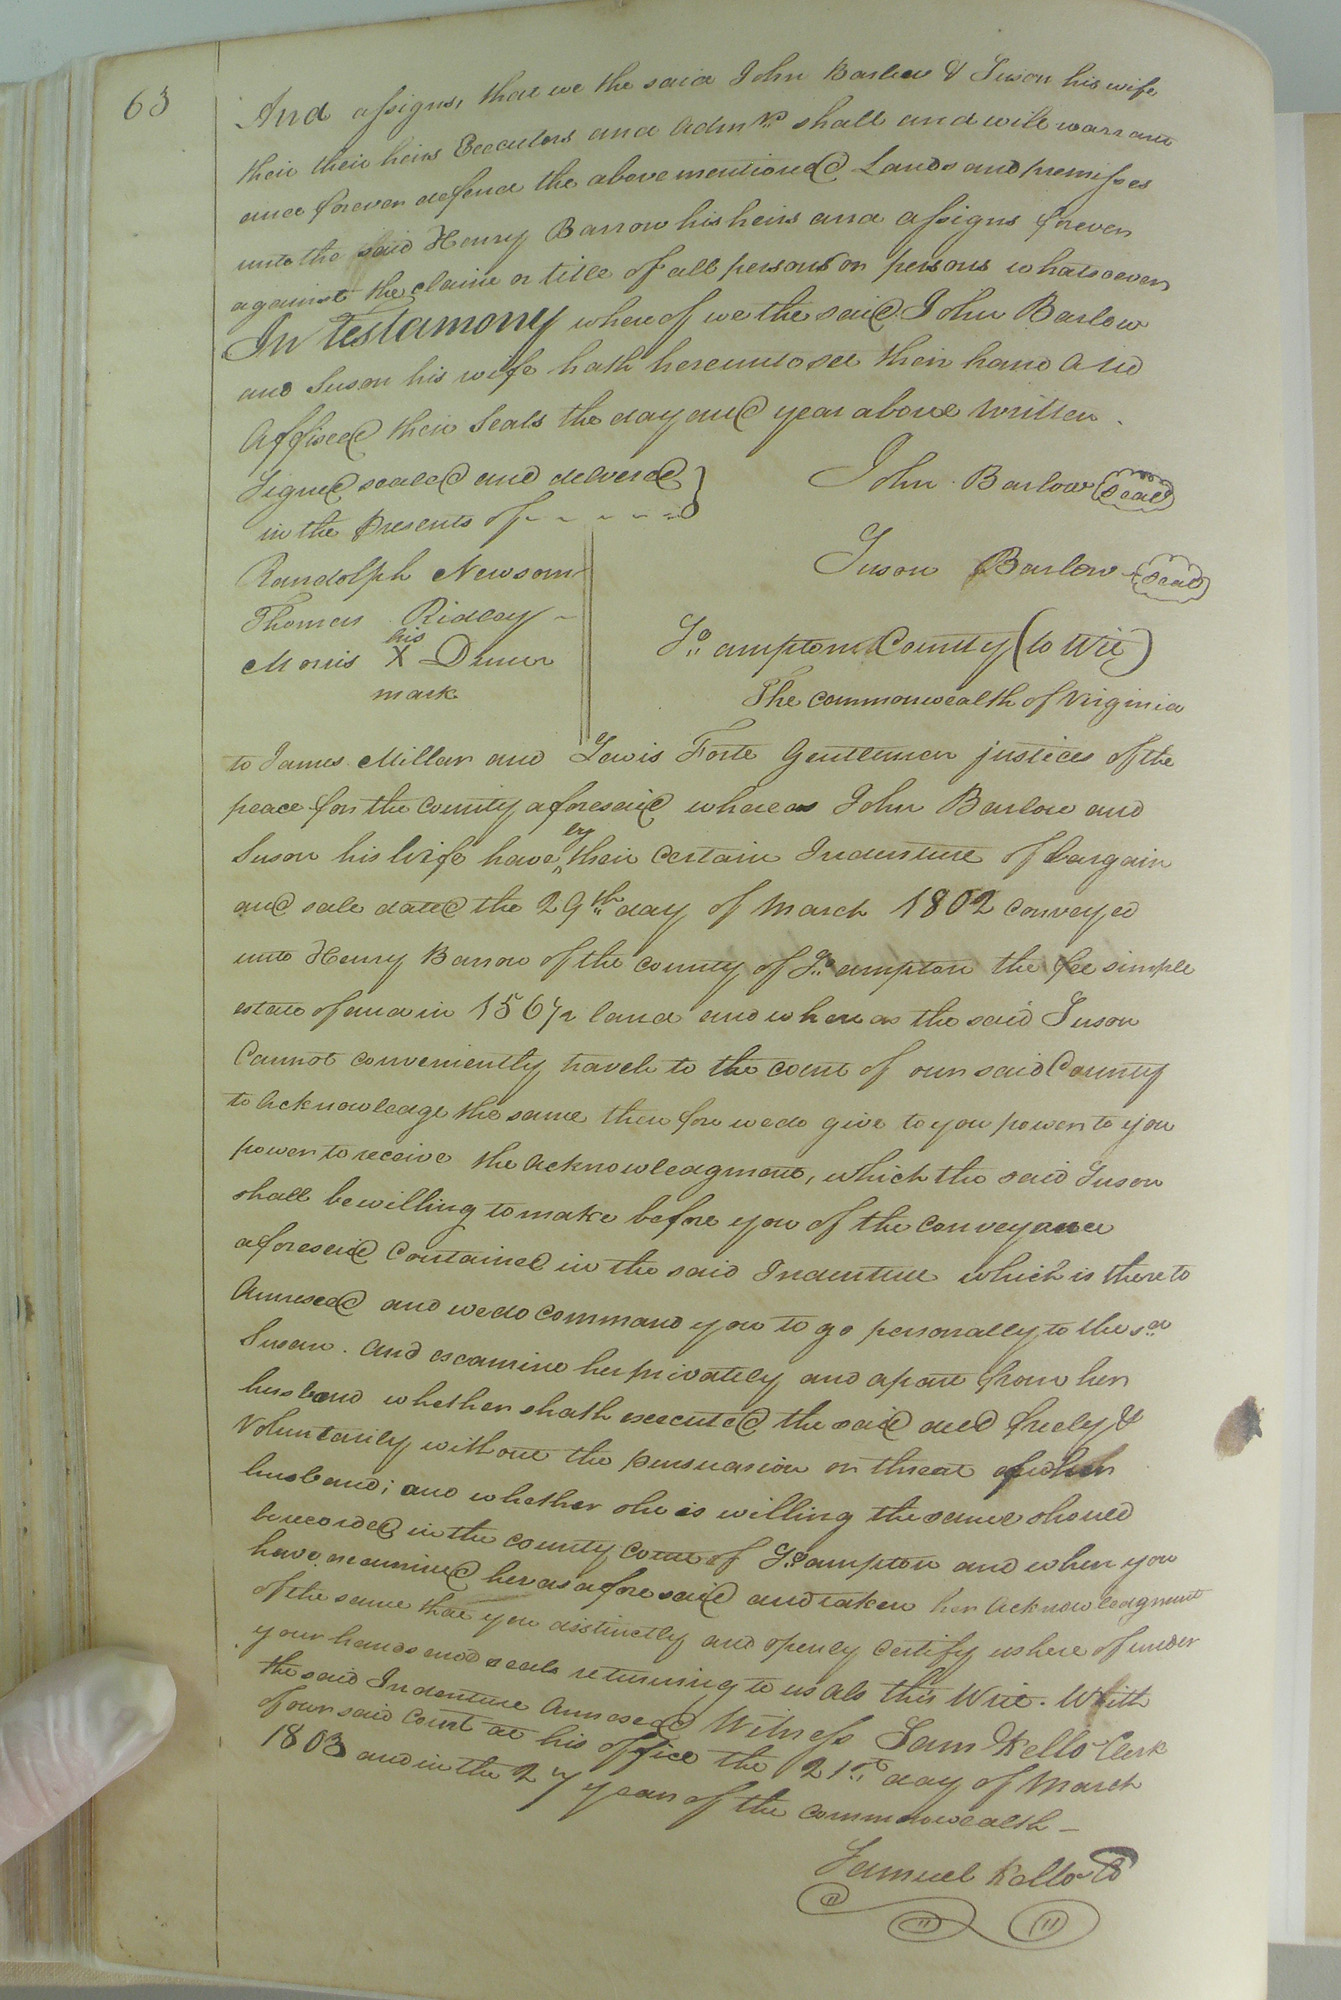 63
And assigns, that we the said John Barlow & Suson his wife
their their heirs Executors and Admrs shall and will warrant
and forever defend the above mentioned Lands and premisses
unto the said Henry Barrow his heirs and assigns forever
against the claim or title of all persons or persons whatsoever
In Testamony where of we the said John Barlow
and Suson his wife hath hereunto set their hand And
Affixed their Seals the day and year above Written.
Signed sealed and delvered
in the Presents of
John Barlow Seal
Suson Barlow Seal
Randolph Newsom
Thomas Ridley
his
Morris X
mark
So. ampton County (to Wit)
The commonwealth of Virginia
to James Millar and Lewis Forte Gentlemen justices of the
peace for the county aforesaid whereas John Barlow and
Suson his Wife have by their certain Indenture of bargain
and sale dated the 29th day of March 1802 conveyed
unto Henry Barrow of the county of So. ampton the fee simple
estate of and in 156½ land and where as the said Suson
Cannot conveniently travel to the court of our said County
to Acknowledge the same there fore we do give to you power to you
power to receive the Acknowledgment, which the said Suson
shall be willing to make before you of the conveyance
aforesaid Contained in the said Indenture which is there to
Annexed and we do command you to go personally to the sd
Susan. And examine her privately and apart from her
husband whether shath executed the said deed freely &
Voluntarily without the persuasion or threat of her
husband; and whether she is willing the same should
be recorded in the county court of So. ampton and when you
have examined her as afore said and taken her Acknowledgment
of the same that you distinctly and openly certify us here of under
your hands and seals returning to us als this Writ. With
the said Indenture Annexed Witness Sam Kello Clerk
of our said Court at his office the 21st day of March
1803 and in the 27 year of the commonwealth
Samuel Kello